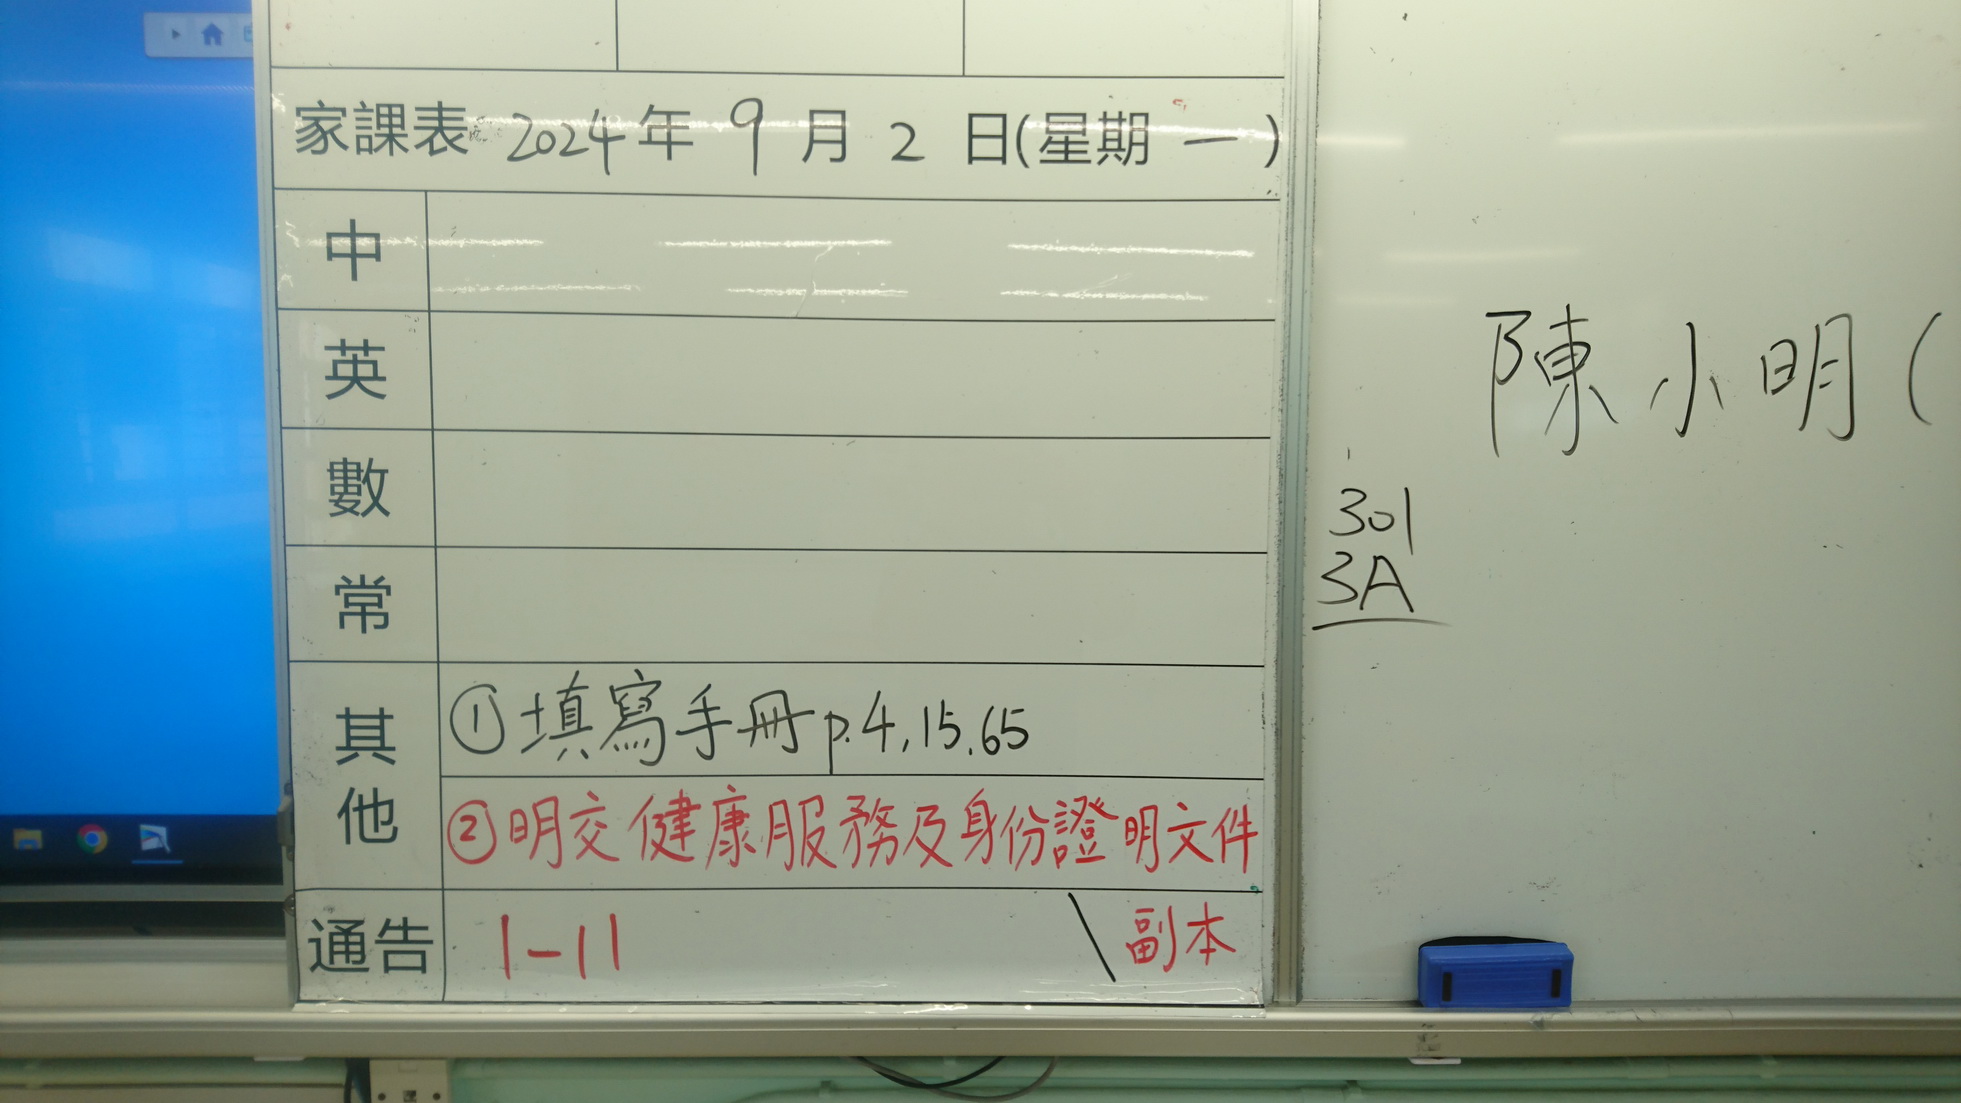 家課表 2024年 9 月 2 日(星期 一 )
中
英
數
常
其他
①填寫手冊p.4,15,65
②明交健康服務及身份證明文件
副本
通告 1-11
陳小明(
301
3A